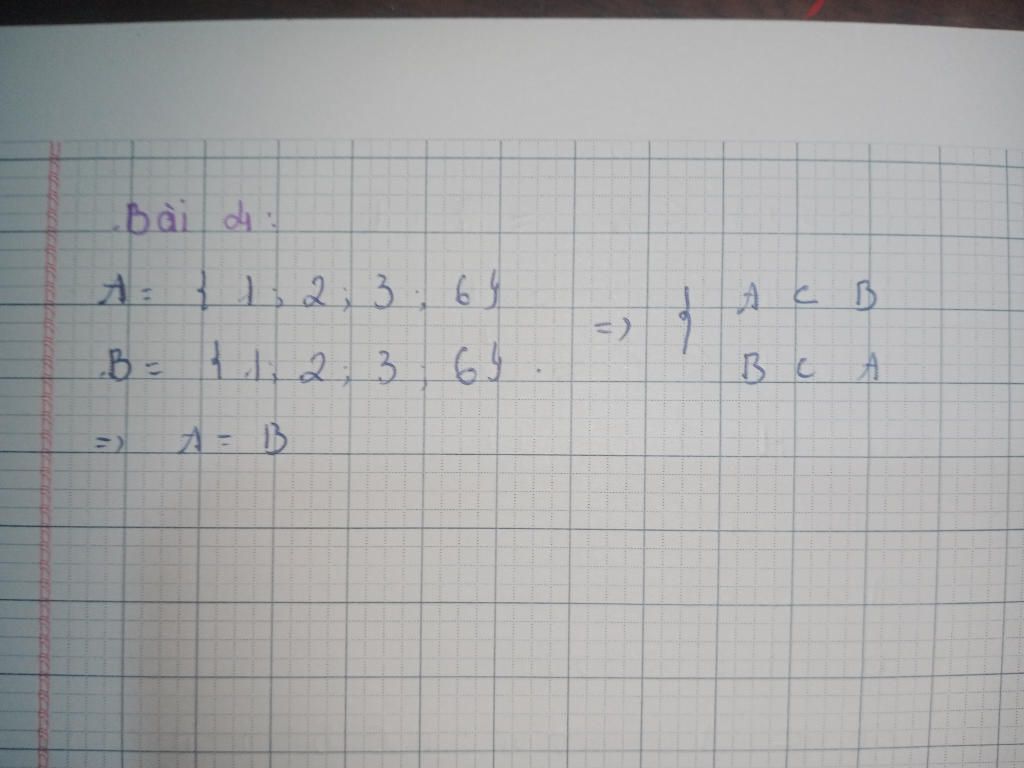 Bài 4:
A = { 1 ; 2 ; 3 ; 6 }
B = { 1 ; 2 ; 3 ; 6 } .
=> { A ⊂ B
B ⊂ A
=> A = B